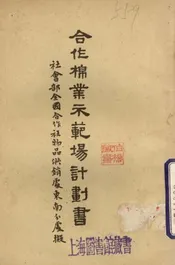 合作棉業示範場計劃書
社會部全國合作社物品供銷處東南分處擬
上海圖書館藏書